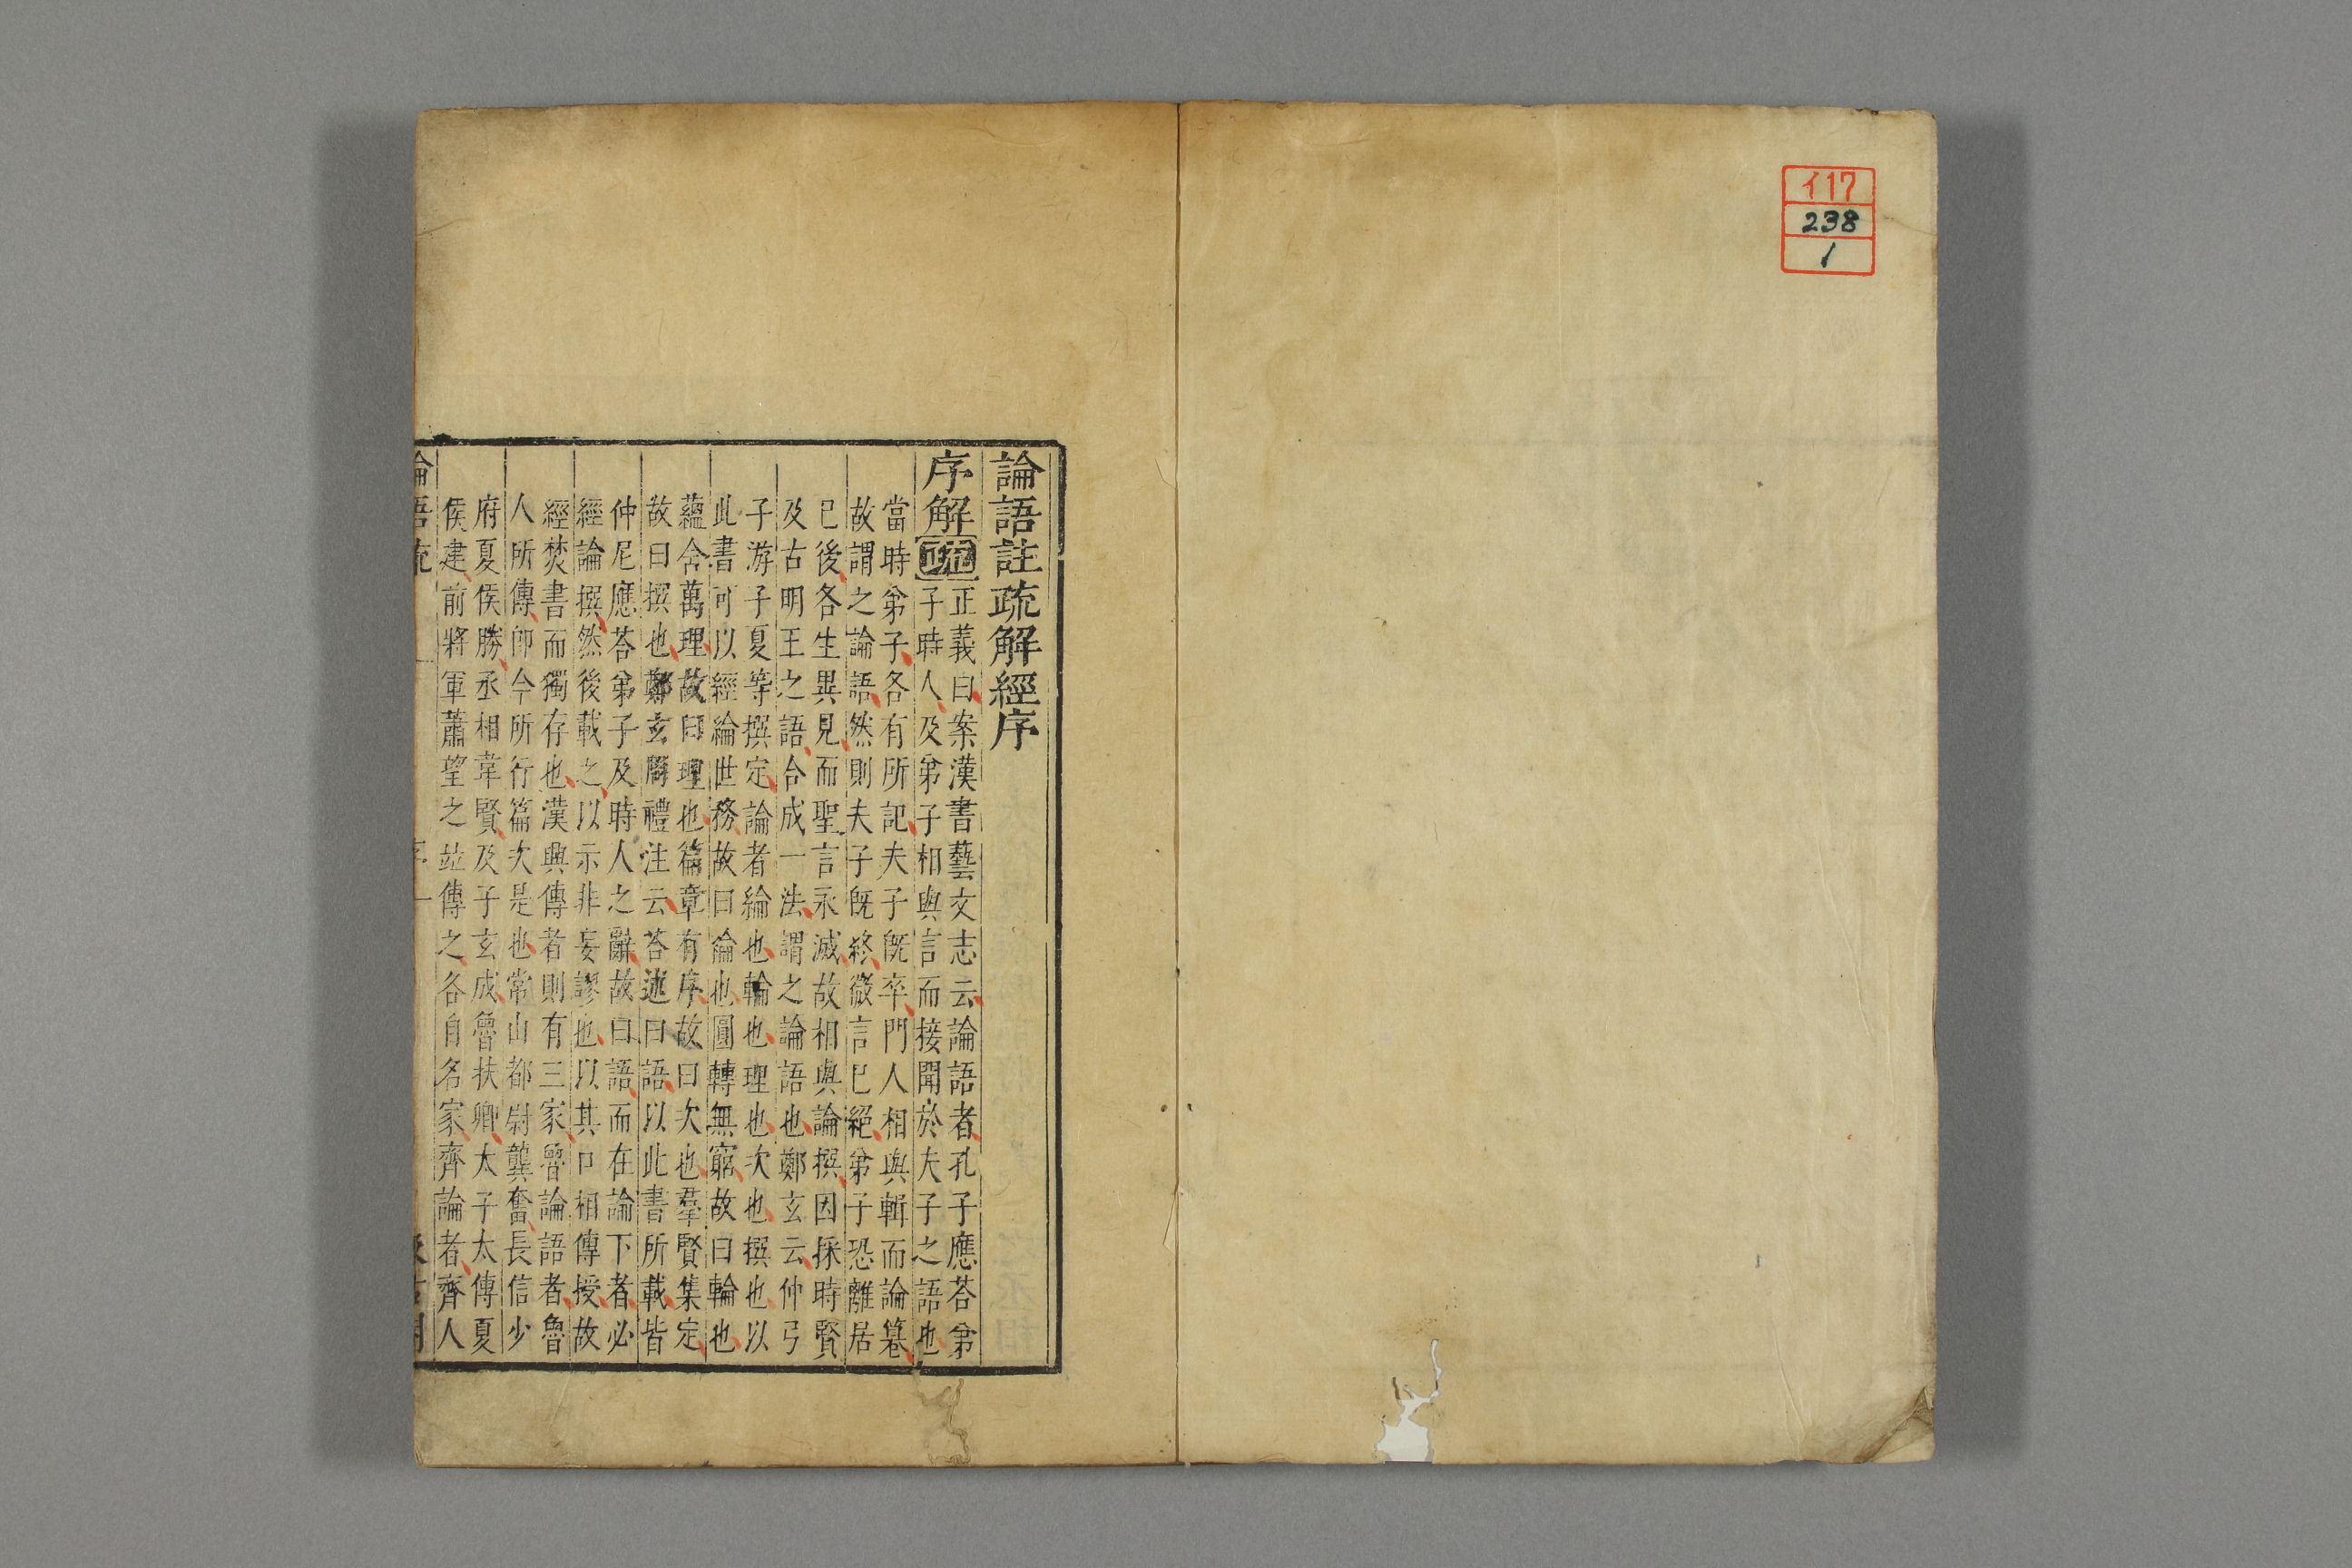 イ17
238
1
論語註疏解經序
序解疏正義曰案漢書藝文志云論語者孔子應荅弟
子時人及弟子相與言而接聞於夫子之語也
當時弟子各有所記夫子既卒門人相與輯而論篹
故謂之論語然則夫子既終微言已絕弟子恐離居
已後各生異見而聖言永滅故相與論撰因採時賢
及古明王之語合成一法謂之論語也鄭玄云仲弓
子游子夏等撰定論者綸也輪也理也次也撰也以
此書可以經綸世務故曰綸也圓轉無窮故曰輪也
蘊含萬理故曰理也篇章有序故曰次也羣賢集定
故曰撰也鄭玄周禮注云荅述曰語以此書所載皆
仲尼應荅弟子及時人之辭故曰語而在論下者必
經論撰然後載之以示非妄謬也以其口相傳授故
經焚書而獨存也漢興傳者則有三家魯論語者魯
人所傳即今所行篇次是也常山都尉龔奮長信少
府夏侯勝丞相韋賢及子玄成魯扶卿太子太傅夏
侯建前將軍蕭望之竝傳之各自名家齊論者齊人
論語疏